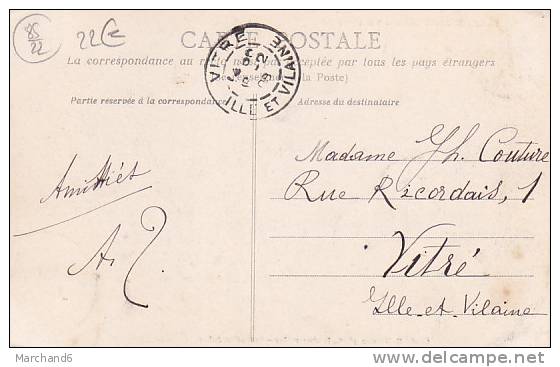 85
22
22€
CARTE POSTALE
La correspondance au acceptée par tous les pays étrangers
la Poste)
Partie réservée à la correspondance
Adresse du destinataire
VITRÉ
ILLE ET VILAINE
Amitiés
Madame Couture
Rue Ricordais, 1
Vitré
Ille-et-Vilaine
Marchand6
www.delcampe.net